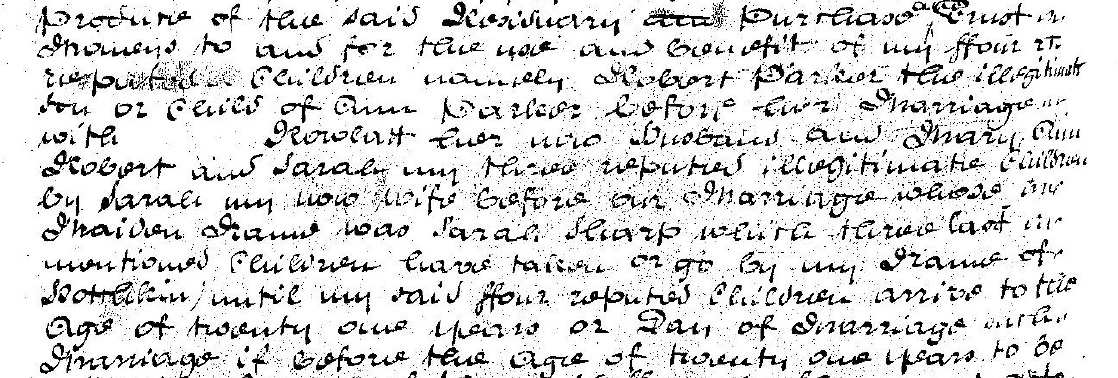 Produce of the said Residuary and Purchase Trust
Moneys to and for the use and benefit of my ffour
reputed Children namely Robert Parker the illegitimate
son or Child of Ann Parker before her Marriage
with Rowlatt her now Husband and Mary Ann
Robert and Sarah my three reputed illegitimate Children
by Sarah my now wife before our Marriage whose
Maiden Name was Sarah Sharp which three last
mentioned Children have taken or go by my Name of
until my said ffour reputed Children arrive to the
Age of twenty one years or Day of Marriage
Marriage if before the Age of twenty one years to be